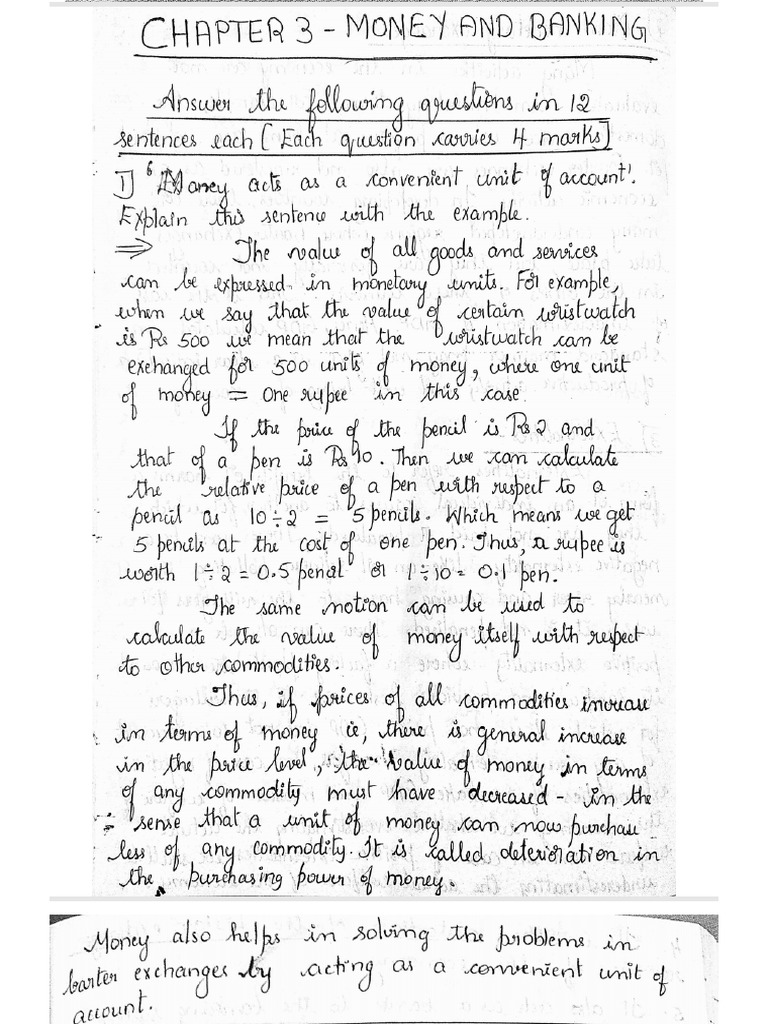 CHAPTER 3 - MONEY AND BANKING
Answer the following questions in 12
sentences each [Each question carries 4 marks]
1] 'Money acts as a convenient unit of account'.
Explain this sentence with the example.
⇒ The value of all goods and services
can be expressed in monetary units. For example,
when we say that the value of certain wristwatch
is Rs 500 we mean that the wristwatch can be
exchanged for 500 units of money, where one unit
of money = One rupee in this case.
If the price of the pencil is Rs 2 and
that of a pen is Rs 10. Then we can calculate
the relative price of a pen with respect to a
pencil as 10 ÷ 2 = 5 pencils. Which means we get
5 pencils at the cost of one pen. Thus, a rupee is
worth 1 ÷ 2 = 0.5 pencil or 1 ÷ 10 = 0.1 pen.
The same notion can be used to
calculate the value of money itself with respect
to other commodities.
Thus, if prices of all commodities increase
in terms of money ie, there is general increase
in the price level, the value of money in terms
of any commodity must have decreased - in the
sense that a unit of money can now purchase
less of any commodity. It is called deterioration in
the purchasing power of money.
Money also helps in solving the problems in
barter exchanges by acting as a convenient unit of
account.